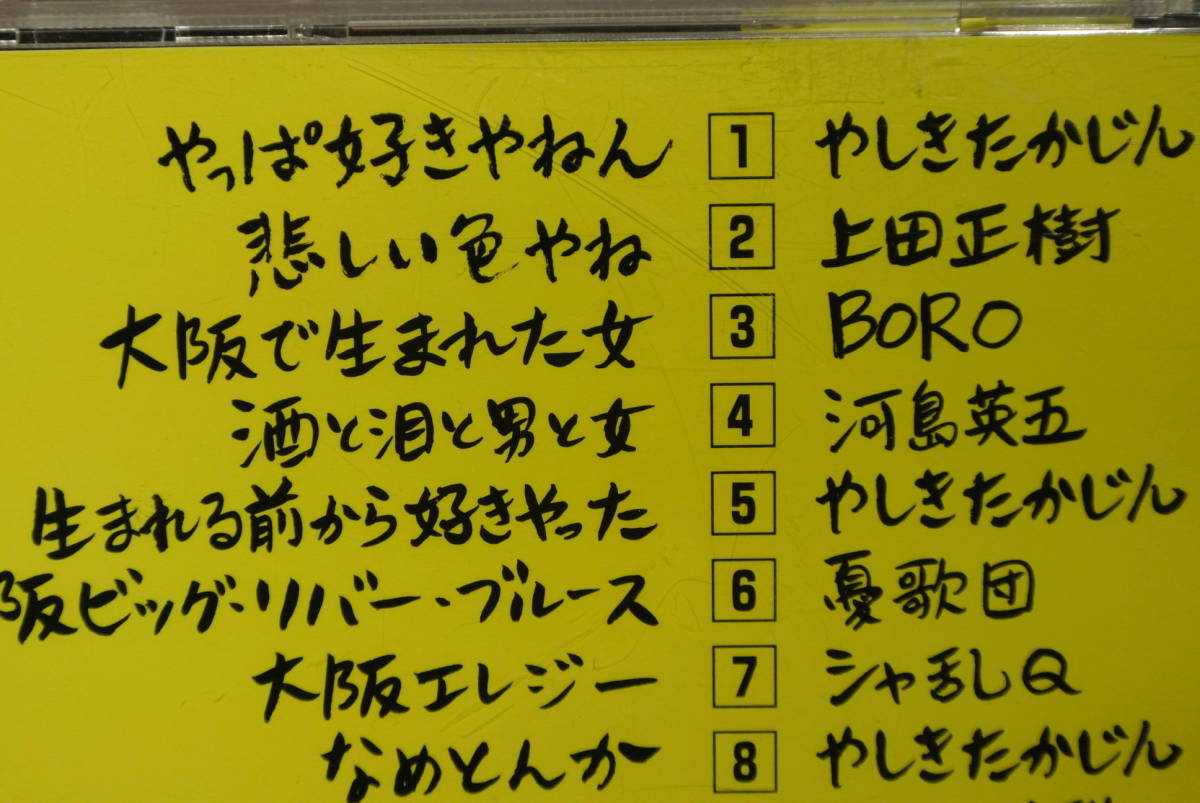 やっぱ好きやねん 1 やしきたかじん
悲しい色やね 2 上田正樹
大阪で生まれた女 3 BORO
酒と泪と男と女 4 河島英五
生まれる前から好きやった 5 やしきたかじん
阪ビッグ・リバー・ブルース 6 憂歌団
大阪エレジー 7 シャ乱Q
なめとんか 8 やしきたかじん